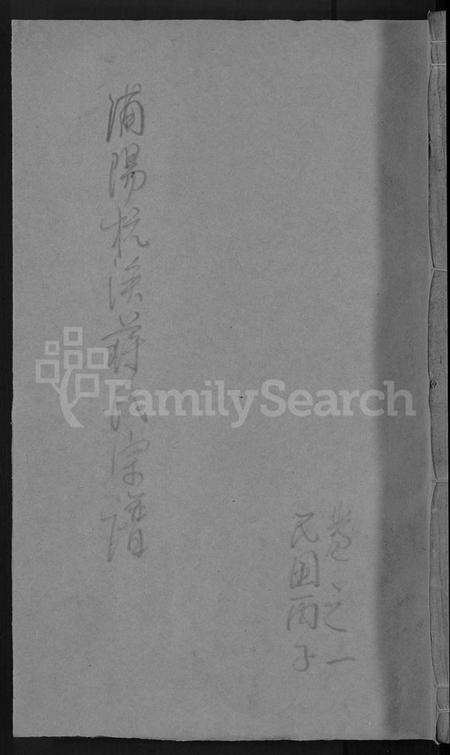 浦陽杭溪蔣氏宗譜
卷之一
民国丙子
FamilySearch